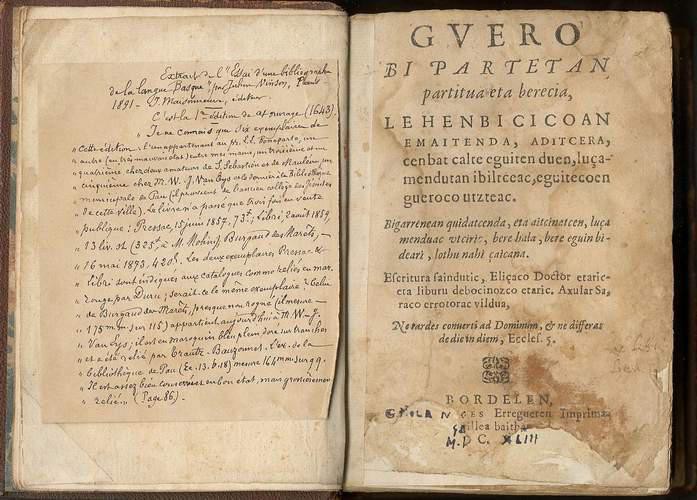 Extrait de l'"Essai d'une bibliographie
de la langue Basque" par Julien Vinson, Paris
1891 - J. Maisonneuve, éditeur.
C'est la 1re édition de cet ouvrage (1643).
" Je ne connais que six exemplaires de
" cette édition. L'un appartenant au pr. L.L. Bonaparte, un
" autre (en très mauvais état) entre mes mains, un troisième et un
" quatrième chez deux amateurs de S. Sébastien et de Mauléon, un
" cinquième chez M. W. J. Van Eys et le dernier à la Bibliothèque
" municipale de Pau (il provient de l'ancien collège des Jésuites
" de cette ville). Le livre n'a passé que trois fois en vente
" publique: Pressac, 15 juin 1857, 73f; Libri, 2 août 1859,
" 13 liv. st (325f à M. Burgaud des Marets, —
" 16 mai 1873, 420f. Les deux exemplaires Pressac &
" Libri sont indiqués aux catalogues comme reliés en mar.
" rouge par Duru; serait-ce le même exemplaire? Celui
" de Burgaud des Marets, presque non rogné (il mesure
" 175 mm sur 115) appartient aujourd'hui à M. W. J.
" Van Eys; il est en maroquin bleu plein doré sur tranches
" et a été relié par Trautz-Bauzonnet. L'ex. de la
" bibliothèque de Pau (Ee. 13. b. 18) mesure 164 mm sur 99.
" Il est assez bien conservé et en bon état, mais grossièrement
" relié." (Page 86). -
GVERO
BI PARTETAN
partitua eta berecia,
LEHENBICICOAN
EMAITENDA, ADITCERA,
cenbat calte eguiten duen, luça-
mendutan ibiltceac, eguitecoen
gueroco utzteac.
Bigarrenean quidatcenda, eta aitcinatcen, luça
menduac utciric, bere hala, bere eguin bi-
deari, lothu nahi çaicana.
Escritura saindutic, Eliçaco Doctor etaric-
eta liburu debocinozco etaric. Axular Sa-
raco errotorac vildua,
Ne tardes conuerti ad Dominum, & ne differas
de die in diem, Eccles. 5.
BORDELEN,
G. MILANGES Erregueren Imprima-
çaillea baitha
M. D C. XLIII